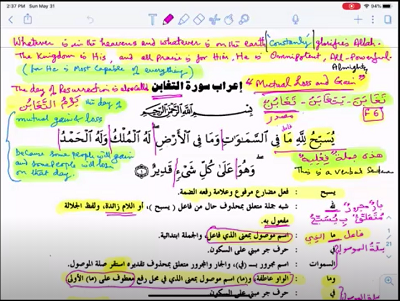 2:37 PM Sun May 31
94%
Whatever is in the heavens and whatever is on the earth Constantly glorifies Allah.
The Kingdom is His, and all Praise is for Him, He is Omnipotent, All-Powerful,
(for He is Most Capable of everything) Almighty
The day of Resurrection is also called إعراب سورة التغابن "Mutual Loss and Gain"
يَوْمُ التَّغَابُنِ the day of
mutual gain & loss
تَغَابَنَ - يَتَغَابَنُ - تَغَابُن
مصدر
F 6
بسم الله الرحمن الرحيم
فاعل
يُسَبِّحُ لِلَّهِ مَا فِي السَّمَاوَاتِ وَمَا فِي الْأَرْضِ لَهُ الْمُلْكُ وَلَهُ الْحَمْدُ
هذه جملة "فعلية"
This is a verbal sentence
because some people will gain
and some people will lose
on that day.
وَهُوَ عَلَى كُلِّ شَيْءٍ قَدِيرٌ
يسبح : فعل مضارع مرفوع وعلامة رفعه الضمة.
لله : شبه جملة متعلق بمحذوف حال من فاعل ( يسبح )، أو اللام زائدة، ولفظ الجلالة
مفعول به.
ما : اسم موصول بمعنى الذي فاعل، والجملة ابتدائية.
في : حرف جر مبني على السكون.
السموات : اسم مجرور بـ (في)، والجار والمجرور متعلق بمحذوف تقديره استقر صلة الموصول.
وما : الواو عاطفة و(ما) اسم موصول بمعنى الذي في محل رفع معطوف على (ما) الأولى
في : حرف جر مبني على السكون.